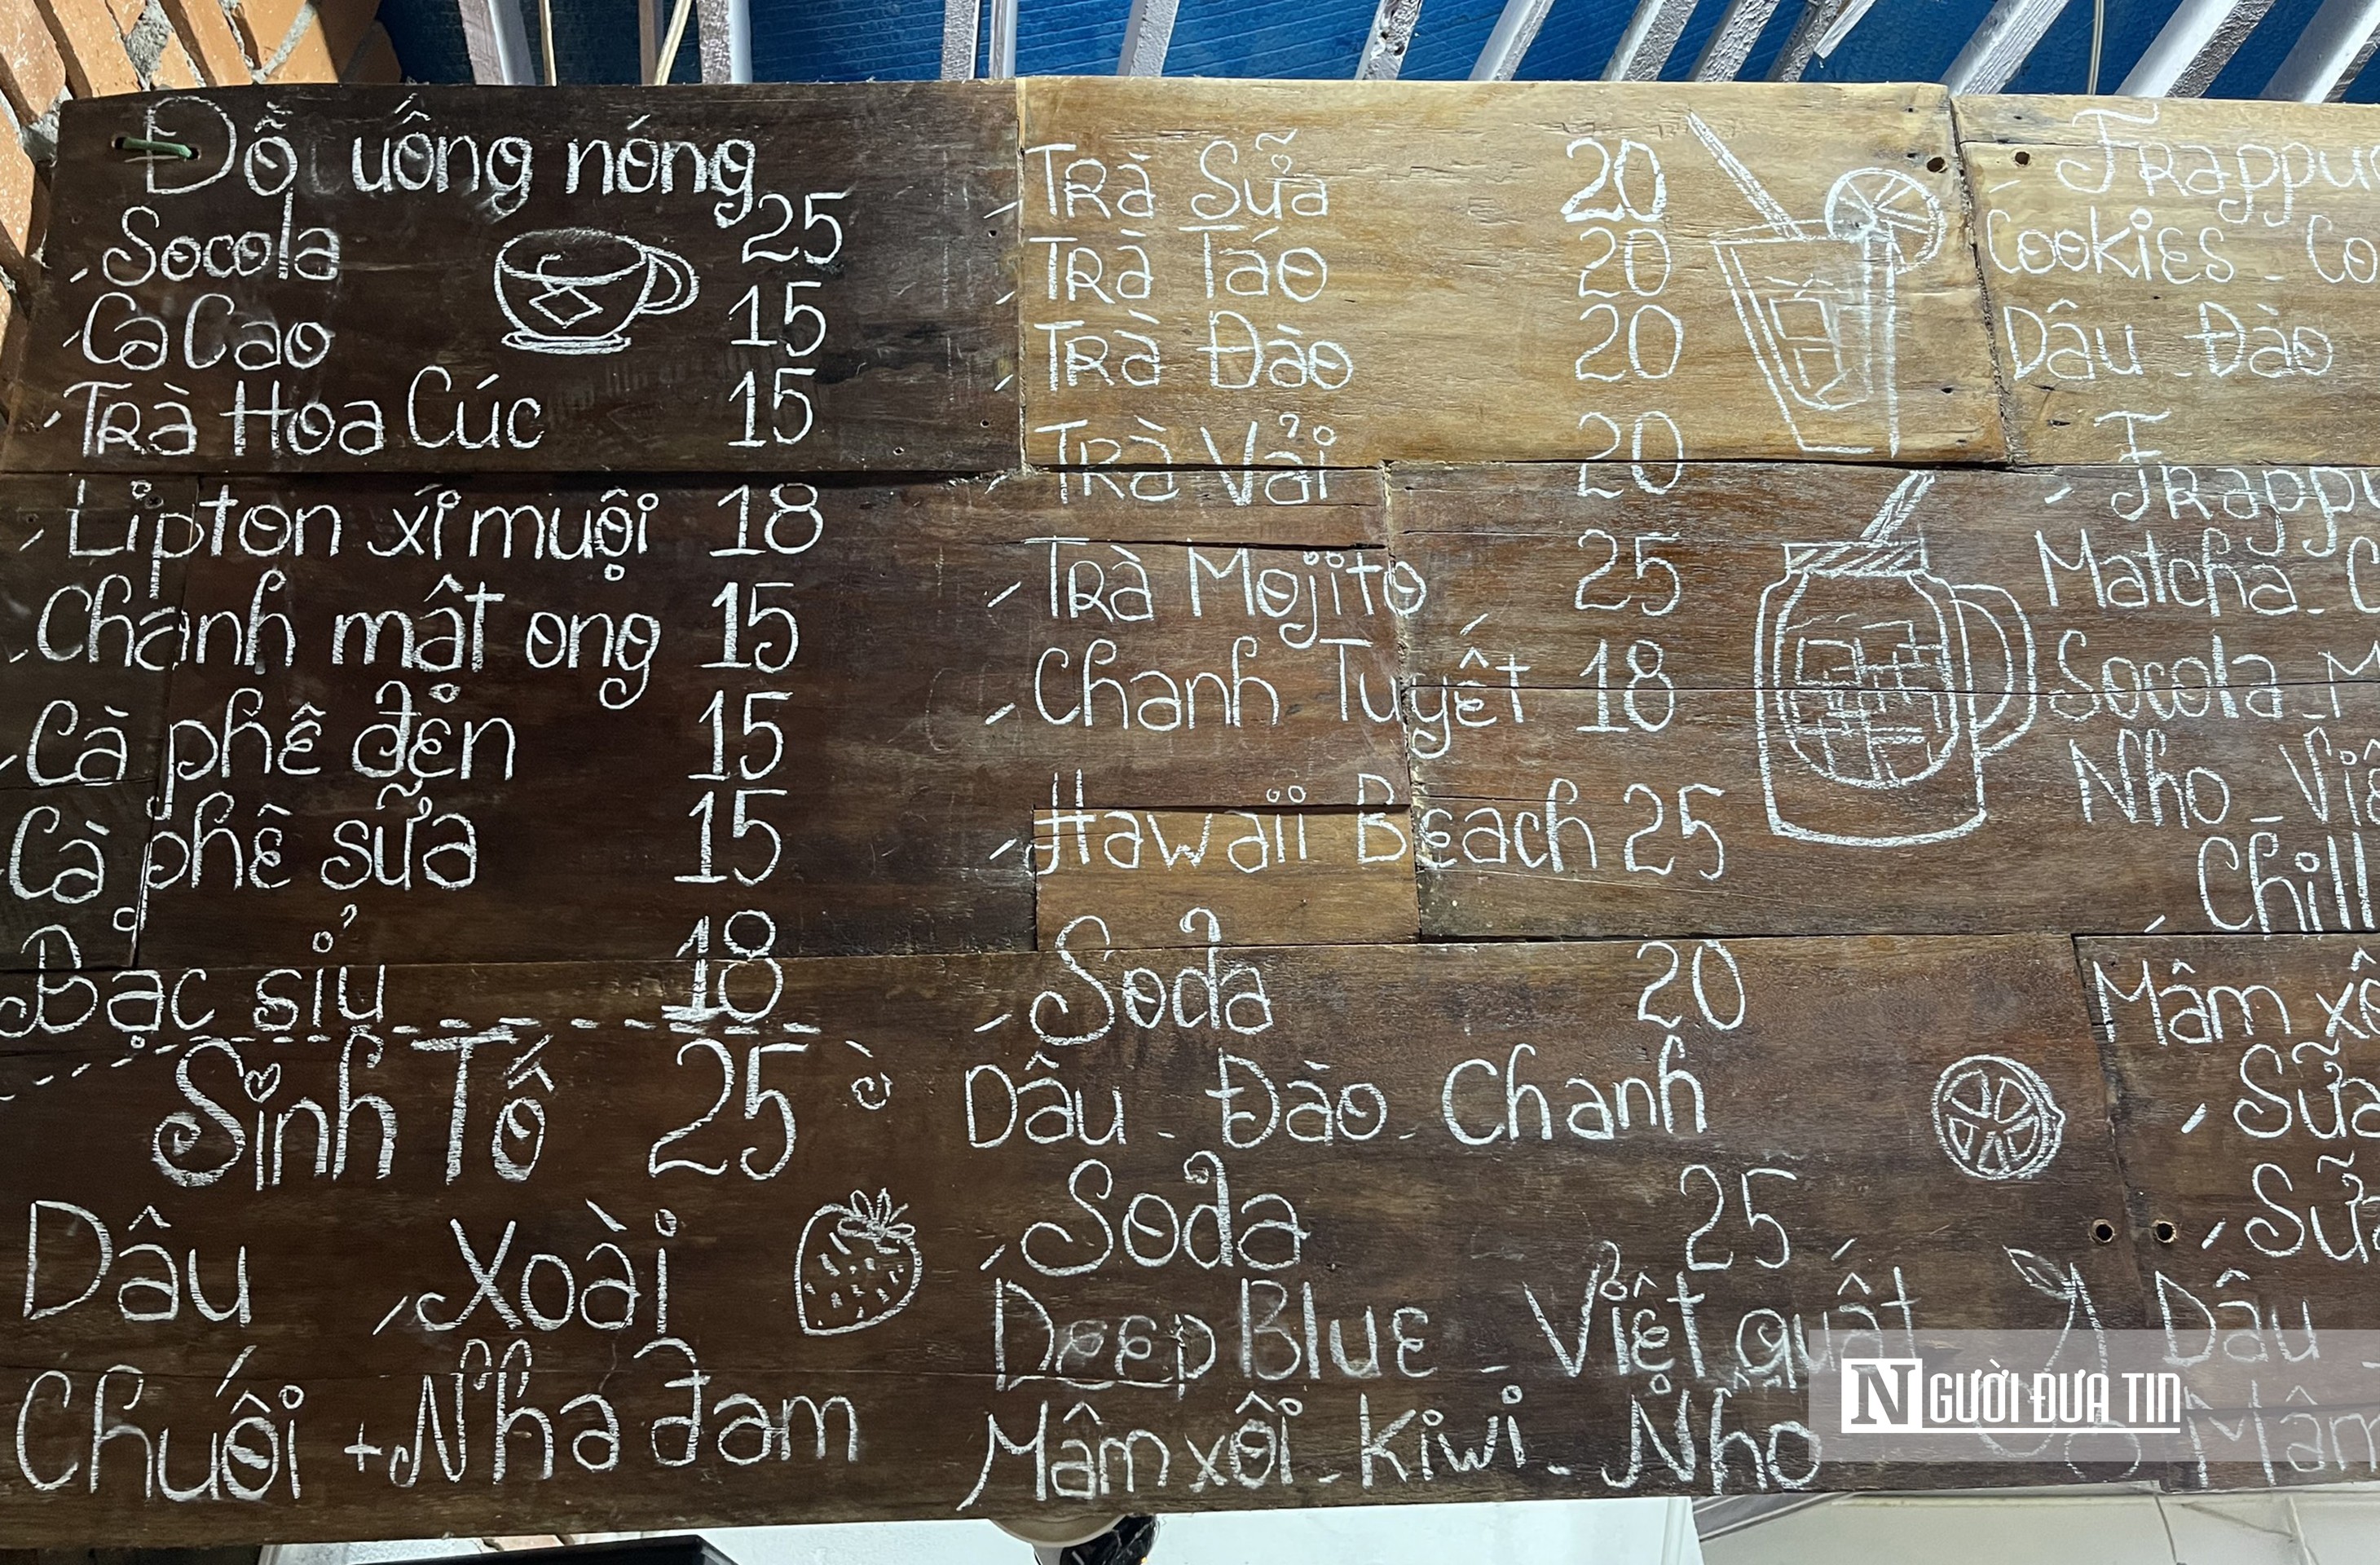 Đồ uống nóng
Socola 25
CaCao 15
Trà Hoa Cúc 15
Lipton xí muội 18
Chanh mật ong 15
Cà phê đen 15
Cà phê sữa 15
Bạc sỉu 18
Sinh Tố 25
Dâu Xoài
Chuối + Nha đam
Trà Sữa 20
Trà Táo 20
Trà Đào 20
Trà Vải 20
Trà Mojito 25
Chanh Tuyết 18
Hawaii Beach 25
Soda 20
Dâu - Đào - Chanh
Soda 25
Deep Blue - Việt quất
Mâm xôi - Kiwi - Nho
Cookies -
Dâu - Đào
Matcha -
Socola -
Nho -
Chill
Mâm
Dâu
NGƯỜI ĐƯA TIN